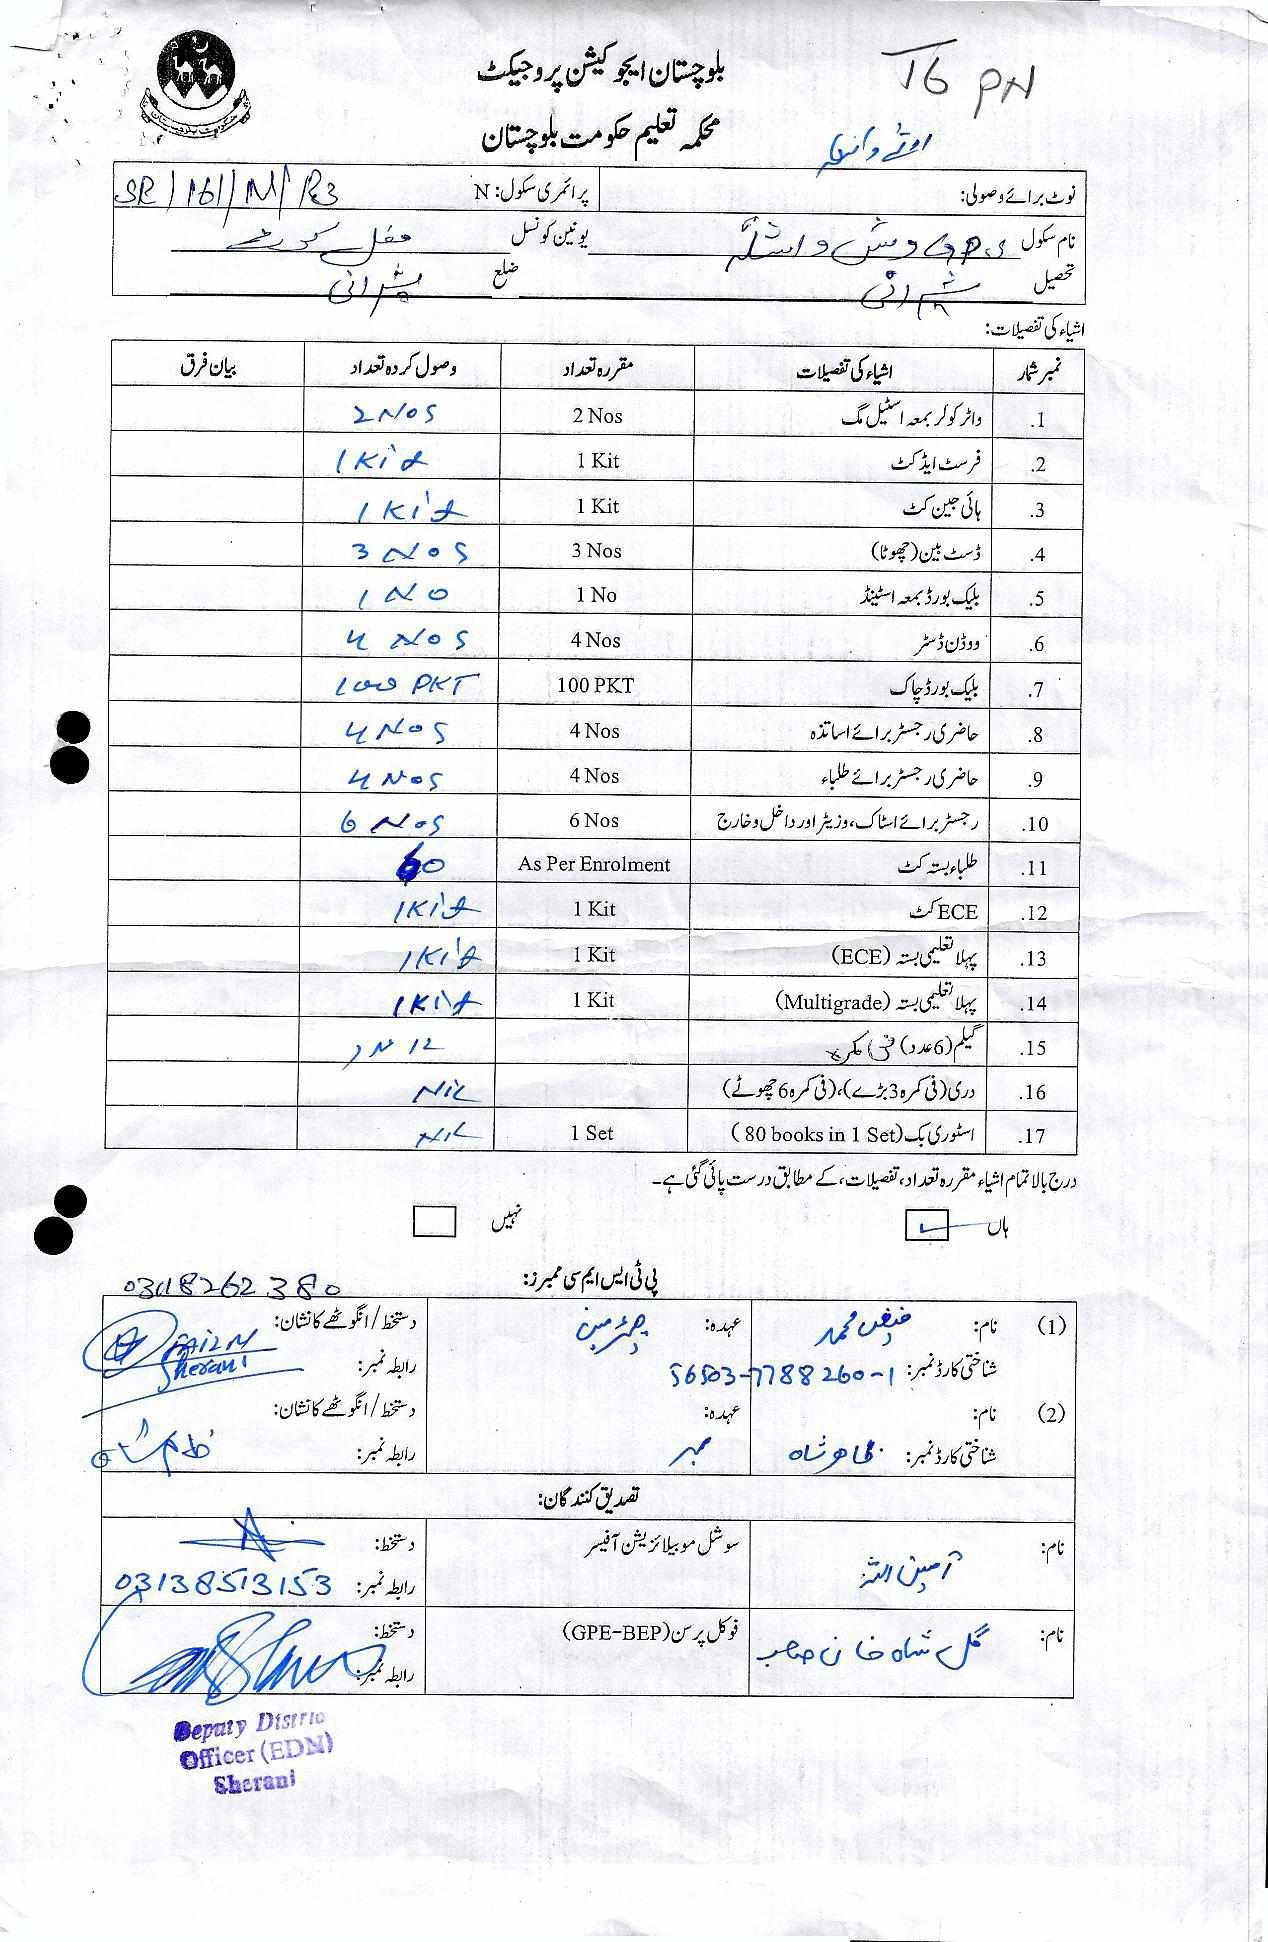 بلوچستان ایجوکیشن پروجیکٹ
محکمہ تعلیم حکومت بلوچستان
نوٹ برائے وصولی: پرائمری سکول: N SR/161/N/R3
نام سکول یونین کونسل
تحصیل شیرانی ضلع شیرانی
اشیاء کی تفصیلات:
نمبر شمار اشیاء کی تفصیلات مقررہ تعداد وصول کردہ تعداد بیان فرق
1. واٹر کولر بمعہ اسٹیل مگ 2 Nos 2 Nos
2. فرسٹ ایڈ کٹ 1 Kit 1 Kit
3. ہائی جین کٹ 1 Kit 1 Kit
4. ڈسٹ بین (چھوٹا) 3 Nos 3 Nos
5. بلیک بورڈ بمعہ اسٹینڈ 1 No 1 No
6. ووڈن ڈسٹر 4 Nos 4 Nos
7. بلیک بورڈ چاک 100 PKT 100 PKT
8. حاضری رجسٹر برائے اساتذہ 4 Nos 4 Nos
9. حاضری رجسٹر برائے طلباء 4 Nos 4 Nos
10. رجسٹر برائے اسٹاک، وزیٹر اور داخل و خارج 6 Nos 6 Nos
11. طلباء بستہ کٹ As Per Enrolment 60
12. ECE کٹ 1 Kit 1 Kit
13. پہلا تعلیمی بستہ (ECE) 1 Kit 1 Kit
14. پہلا تعلیمی بستہ (Multigrade) 1 Kit 1 Kit
15. گیلم (6 عدد) فی کمرہ 12 عدد
16. دری (فی کمرہ 3 بڑے)، (فی کمرہ 6 چھوٹے) NIL
17. اسٹوری بک (80 books in 1 Set) 1 Set NIL
درج بالا تمام اشیاء مقررہ تعداد، تفصیلات، کے مطابق درست پائی گئی ہے۔
ہاں نہیں
پی ٹی ایس ایم سی ممبرز:
(1) نام: فیض محمد عہدہ: چیئرمین دستخط/انگوٹھے کا نشان:
شناختی کارڈ نمبر: 56503-7788260-1 رابطہ نمبر:
(2) نام: عہدہ: دستخط/انگوٹھے کا نشان:
شناختی کارڈ نمبر: طاہر شاہ ممبر رابطہ نمبر:
تصدیق کنندگان:
نام: امین اللہ سوشل موبیلائزیشن آفیسر دستخط:
رابطہ نمبر: 03138513153
نام: گل شاہ خان صاحب فوکل پرسن (GPE-BEP) دستخط:
رابطہ نمبر:
Deputy District
Officer (EDN)
Sherani